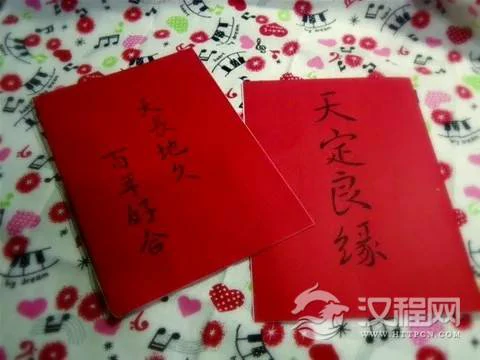 天长地久
百年好合
天定良缘
by dream
汉程网
WWW.HTTPCN.COM